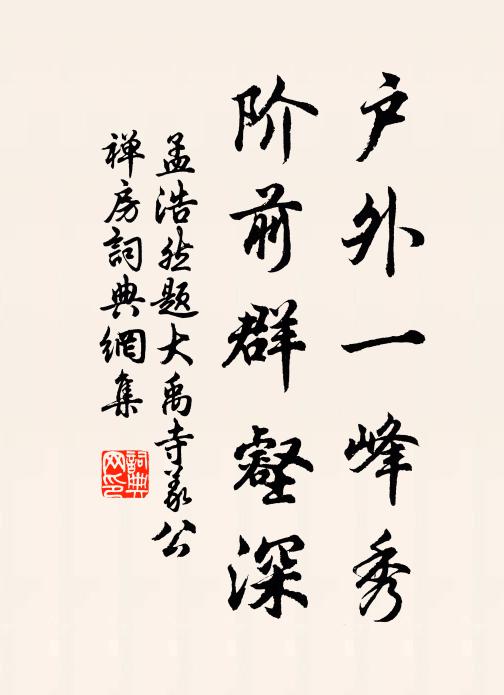 户外一峰秀
阶前群壑深
孟浩然题大禹寺义公
禅房詞典網集
詞典网印